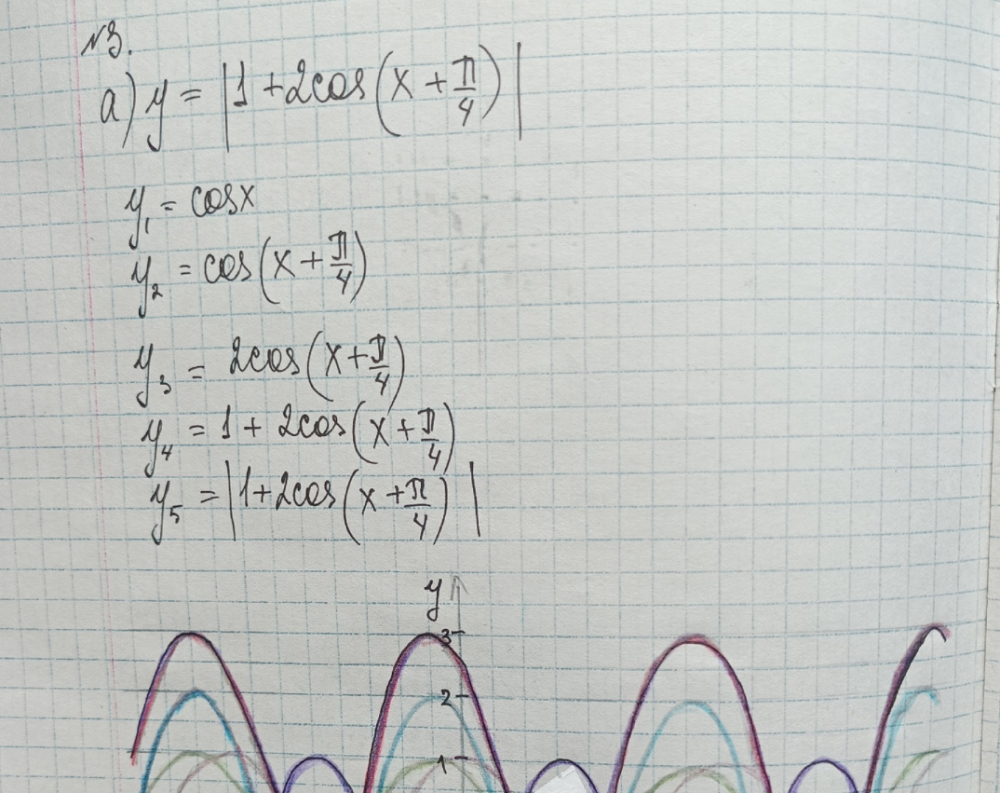 №3.
а) y = |1 + 2cos(x + π/4)|
y₁ = cosx
y₂ = cos(x + π/4)
y₃ = 2cos(x + π/4)
y₄ = 1 + 2cos(x + π/4)
y₅ = |1 + 2cos(x + π/4)|
y
3
2
1